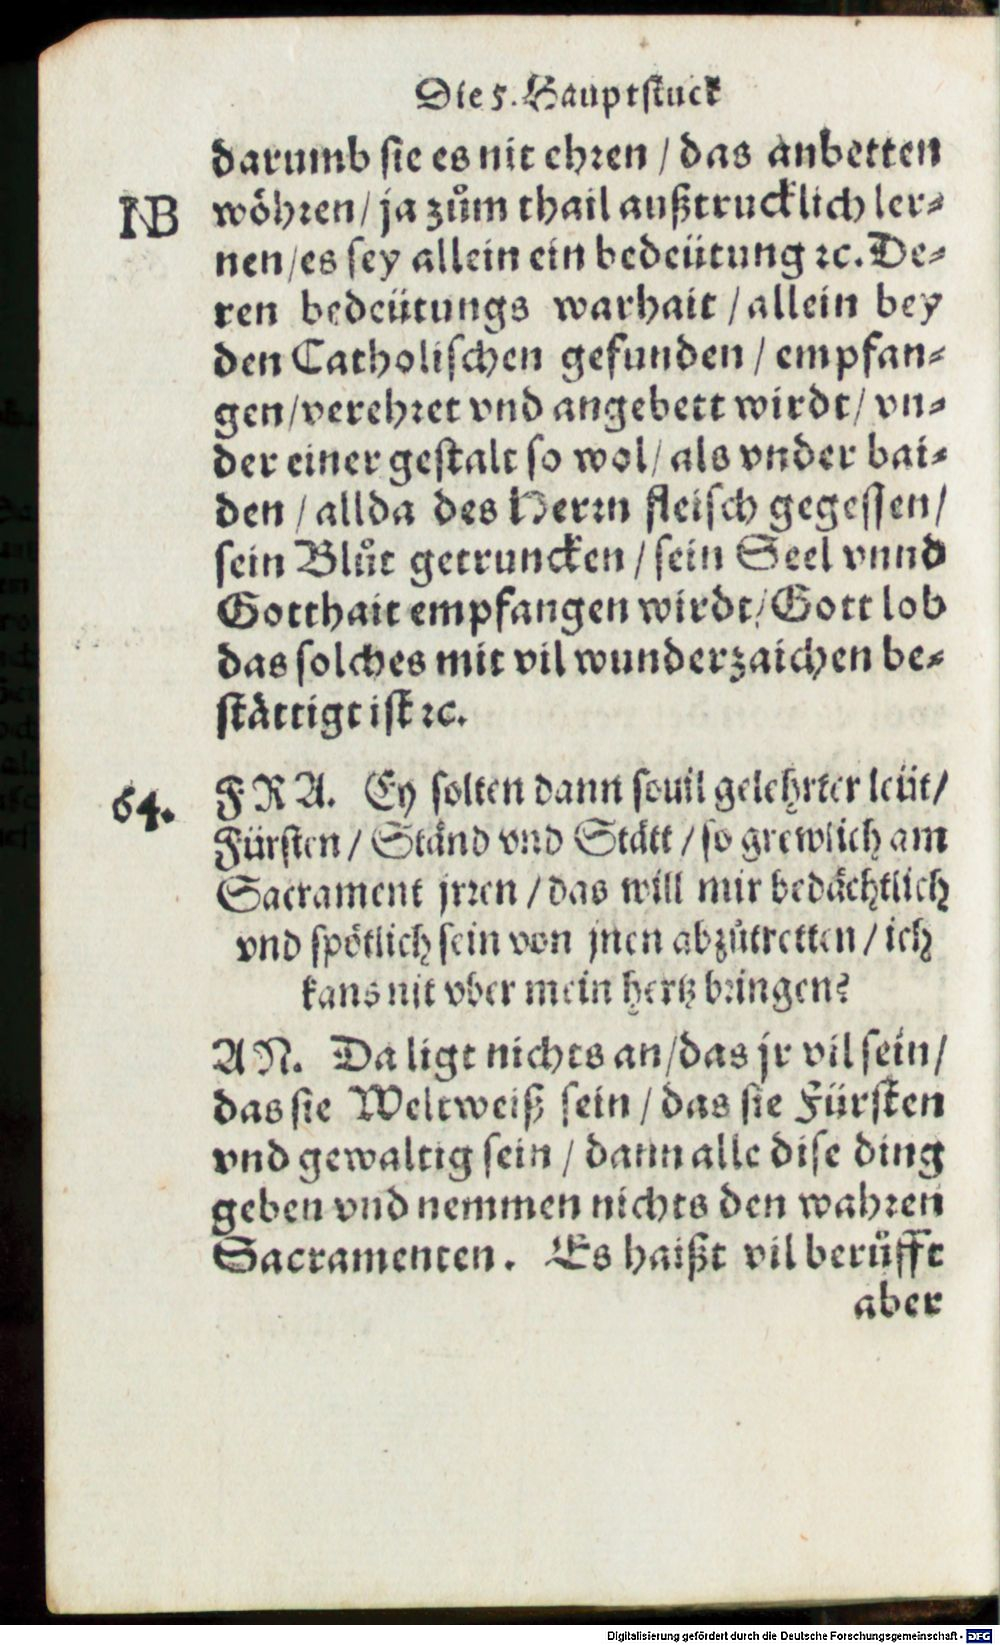 Die 5. Hauptstuck
darumb sie es nit ehren / das anbetten
NB wöhren / ja zům thail außtrucklich ler⸗
nen / es sey allein ein bedeütung ꝛc. De⸗
ren bedeütungs warhait / allein bey
den Catholischen gefunden / empfan⸗
gen / verehret vnd angebett wirdt / vn⸗
der einer gestalt so wol / als vnder bai⸗
den / allda des Herrn fleisch gegessen /
sein Blůt getruncken / sein Seel vnnd
Gotthait empfangen wirdt / Gott lob
das solches mit vil wunderzaichen be⸗
stättigt ist ꝛc.
64. FRA. Ey solten dann souil gelehrter leüt /
Fürsten / Ständ vnd Stätt / so grewlich am
Sacrament jrren / das will mir bedächtlich
vnd spötlich sein von jnen abzůtretten / ich
kans nit vber mein hertz bringen?
AN. Da ligt nichts an / das jr vil sein /
das sie Weltweiß sein / das sie Fürsten
vnd gewaltig sein / dann alle dise ding
geben vnd nemmen nichts den wahren
Sacramenten. Es haißt vil berůfft
aber
Digitalisierung gefördert durch die Deutsche Forschungsgemeinschaft - DFG